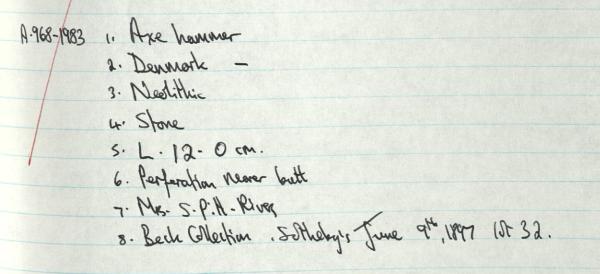 A.968-1983 1. Axe hammer
2. Denmark —
3. Neolithic
4. Stone
5. L. 12.0 cm.
6. Perforation nearer butt
7. Mrs. S.P.H. Rivers
8. Beck Collection. Sotheby's June 9th, 1897 lot 32.